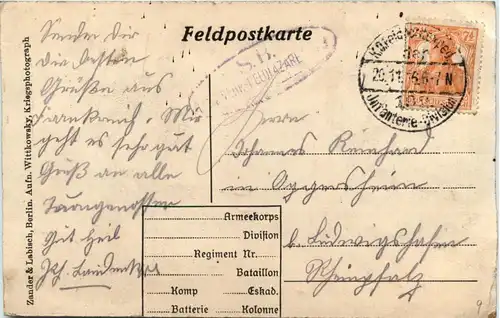 Feldpostkarte
Sende dir
die besten
Grüße aus
Frankreich. Mir
geht es sehr gut
Gruß an alle
Turngenossen
Gut Heil
Zander & Labisch, Berlin. Aufn. Wittkowsky, Kriegsphotograph
S. B.
FELDLAZARE
20.11.16. 6-7 N
Infanterie-Division
7½
Herrn
Johannes Reinhard
in Oggersheim
b. Ludwigshafen
Rheinpfalz
Armeekorps
Division
Regiment Nr.
Bataillon
Komp Eskad.
Batterie Kolonne